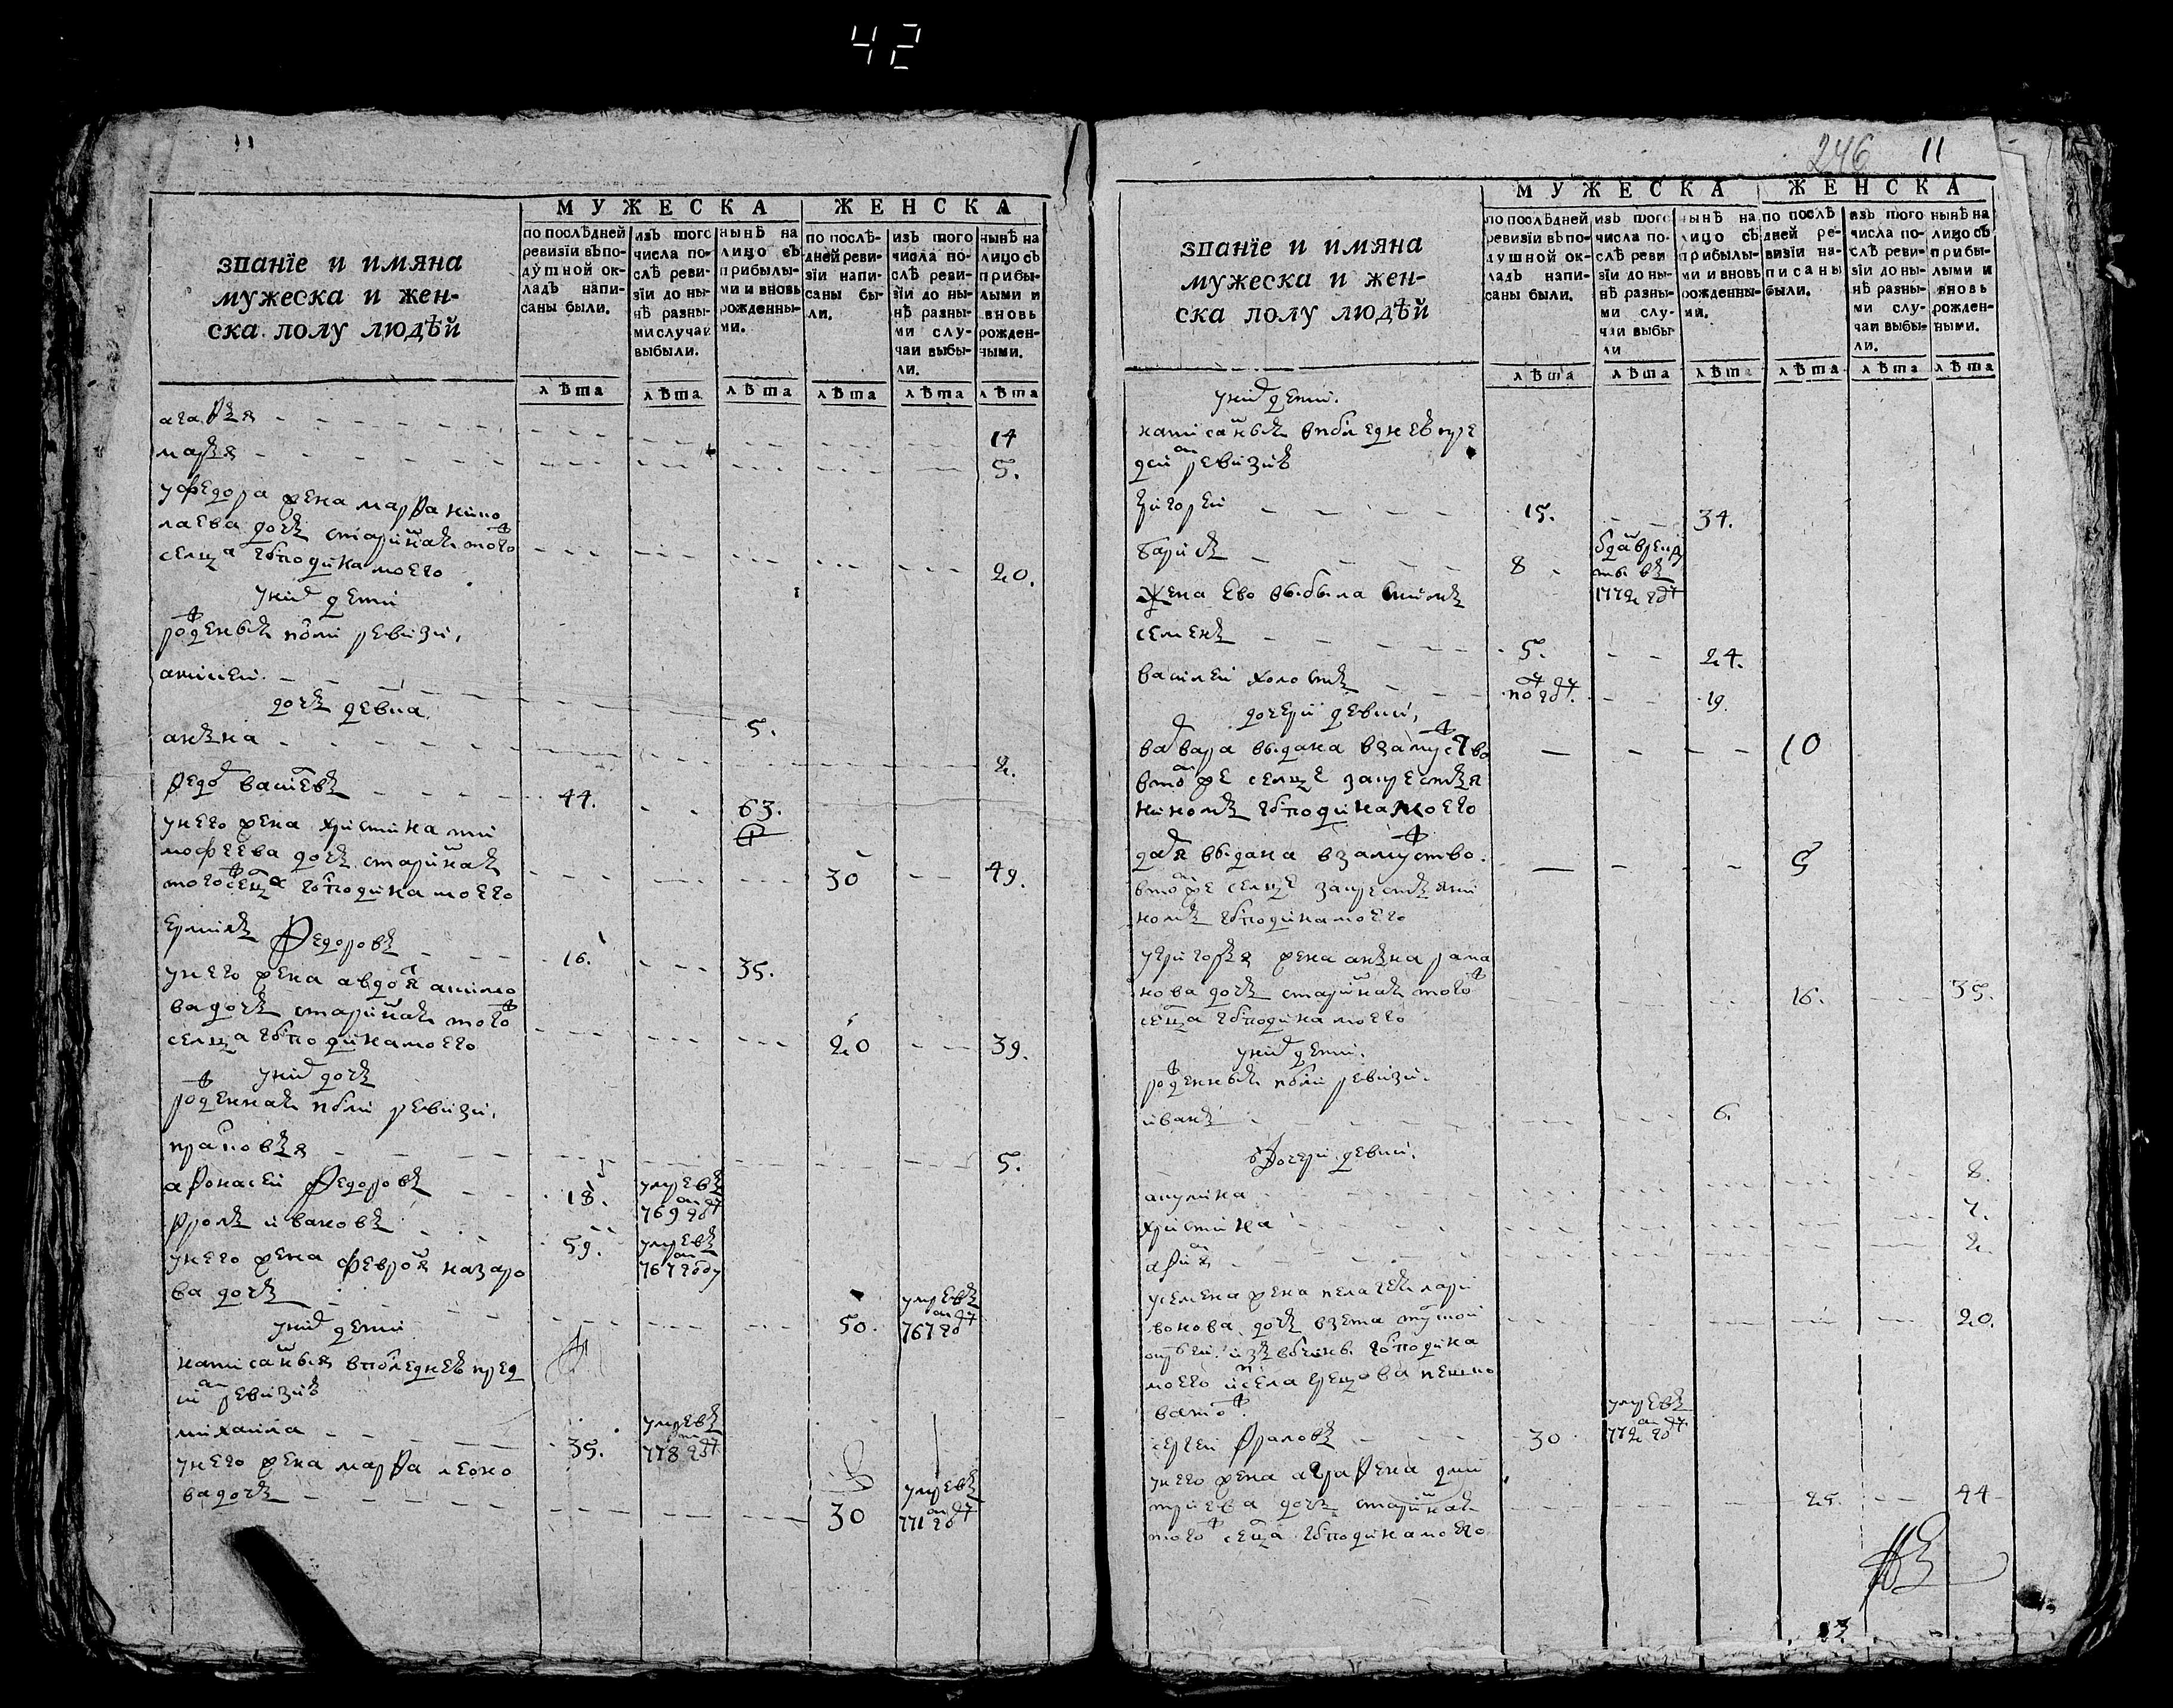 42
11
М У Ж Е С К А
Ж Е Н С К А
званїе и имяна
мужеска и жен-
ска полу людѣй
по послѣдней
ревизїи въ по-
душной ок-
ладъ напи-
саны были.
изъ того
числа по-
слѣ реви-
зїи до ны-
нѣ разны-
ми случаи
выбыли.
нынѣ на
лицо съ
прибылы-
ми и вновь
рожденны-
ми.
по послѣ-
дней реви-
зїи напи-
саны бы-
ли.
изъ того
числа по-
слѣ реви-
зїи до ны-
нѣ разны-
ми слу-
чаи выбы-
ли.
нынѣ на
лицо съ
прибы-
лыми и
вновь
рожден-
ными.
лѣта лѣта лѣта лѣта лѣта лѣта
агафья 14
марья 5.
у федора жена марфа нико
лаева дочь старинная того ж
селца господина моего 20.
у них дети
рожденыя после ревизи,
алексей 5.
дочь девка
анъна 2.
федор васильевъ 44. 63.
у него жена христина ти
мофеева дочь старинная
того ж селца господина моего 30 49.
ермилъ федоровъ 16. 35.
у него жена авдотя
ва дочь старинная того ж
селца господина моего 20 39.
у них дочь
рожденная после ревизи,
прасковья 5.
афонасей федоровъ 18. умре въ
769 году
фролъ ивановъ 59. умре въ
767 году
у него жена феврония назаро
ва дочь 50. умре въ
767 году
у них дети
написанныя в последнею пред
сим ревизию
михаила 35. умре въ
778 году
у него жена марфа леоно
ва дочь 30 умре въ
771 году
246 11
М У Ж Е С К А
Ж Е Н С К А
званїе и имяна
мужеска и жен-
ска полу людѣй
по послѣдней
ревизїи въ по-
душной ок-
ладъ напи-
саны были.
изъ того
числа по-
слѣ реви-
зїи до ны-
нѣ разны-
ми слу-
чаи выбы-
ли
нынѣ на
лицо съ
прибылы-
ми и вновь
рожденны-
ми.
по послѣ-
дней ре-
визїи на-
писаны
были.
изъ того
числа по-
слѣ реви-
зїи до ны-
нѣ разны-
ми слу-
чаи выбы-
ли.
нынѣ на
лицо съ
прибы-
лыми и
вновь
рожден-
ными.
лѣта лѣта лѣта лѣта лѣта лѣта
у них дети.
написанныя в последнею пре
дсим ревизию
григорей 15. 34.
барисъ 8 отдан в рекру
ты въ
1772 году
жена ево выбыла с ним
семенъ 5. 24.
василей холостъ по году. 19.
дочери девки,
варвара выдана в замужство 10
в том же селце за крестья
нином господина моего
дарья выдана в замужство. 5
в том же селце за крестьяни
ном господина моего
у григорья жена анъна рама
нова дочь старинная того ж 16. 35.
селца господина моего
у них дети.
рожденныя после ревизи.
иванъ 6.
дочери девки.
акулина 8.
христина 7.
2.
у семена жена пелагея лари
вонова дочь взета 20.
из вотчины господина
моего села
сергей фраловъ 30 умре въ
772 году
у него жена аграфена дми
триева дочь старинная 25. 44
того ж селца господина моего